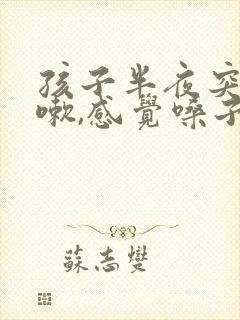 孩子半夜突
嗽,感覺嗓子
蘇志燮